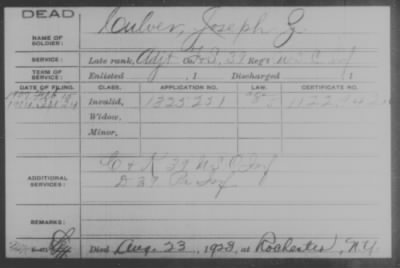 DEAD
NAME OF SOLDIER: Culver, Joseph Z
SERVICE: Late rank, Adjt Co. F.S, 37 Reg't U S C Inf
TERM OF SERVICE: Enlisted , 1 Discharged 1
DATE OF FILING. CLASS. APPLICATION NO. LAW. CERTIFICATE NO.
Invalid, 1325251
Widow,
Minor,
C & K 37 U S C Inf
ADDITIONAL SERVICES: D 37 Inf
REMARKS:
Died Aug. 23, 1923, at Rochester, N.Y.